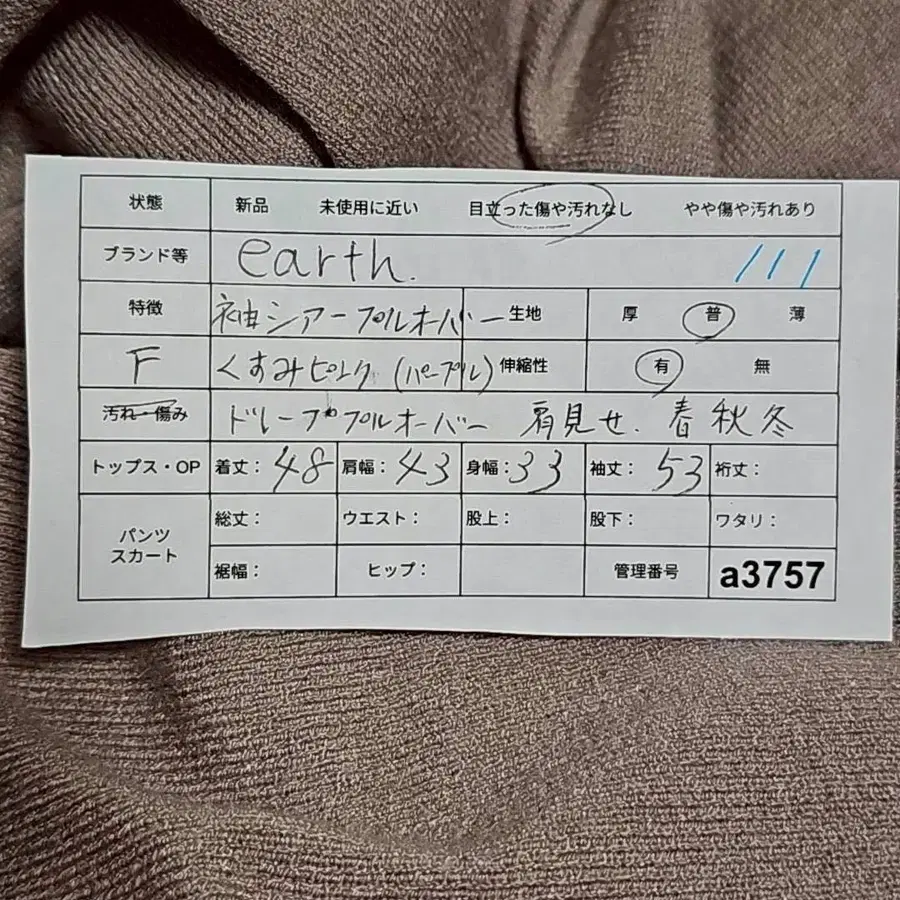 状態 新品 未使用に近い 目立った傷や汚れなし やや傷や汚れあり
ブランド等 earth. 111
特徴 袖シアープルオーバー 生地 厚 普 薄
F くすみピンク (パープル) 伸縮性 有 無
汚れ・傷み ドレーププルオーバー 肩見せ. 春秋冬
トップス・OP 着丈: 48 肩幅: 43 身幅: 33 袖丈: 53 裄丈:
パンツ スカート 総丈: ウエスト: 股上: 股下: ワタリ:
裾幅: ヒップ: 管理番号 a3757